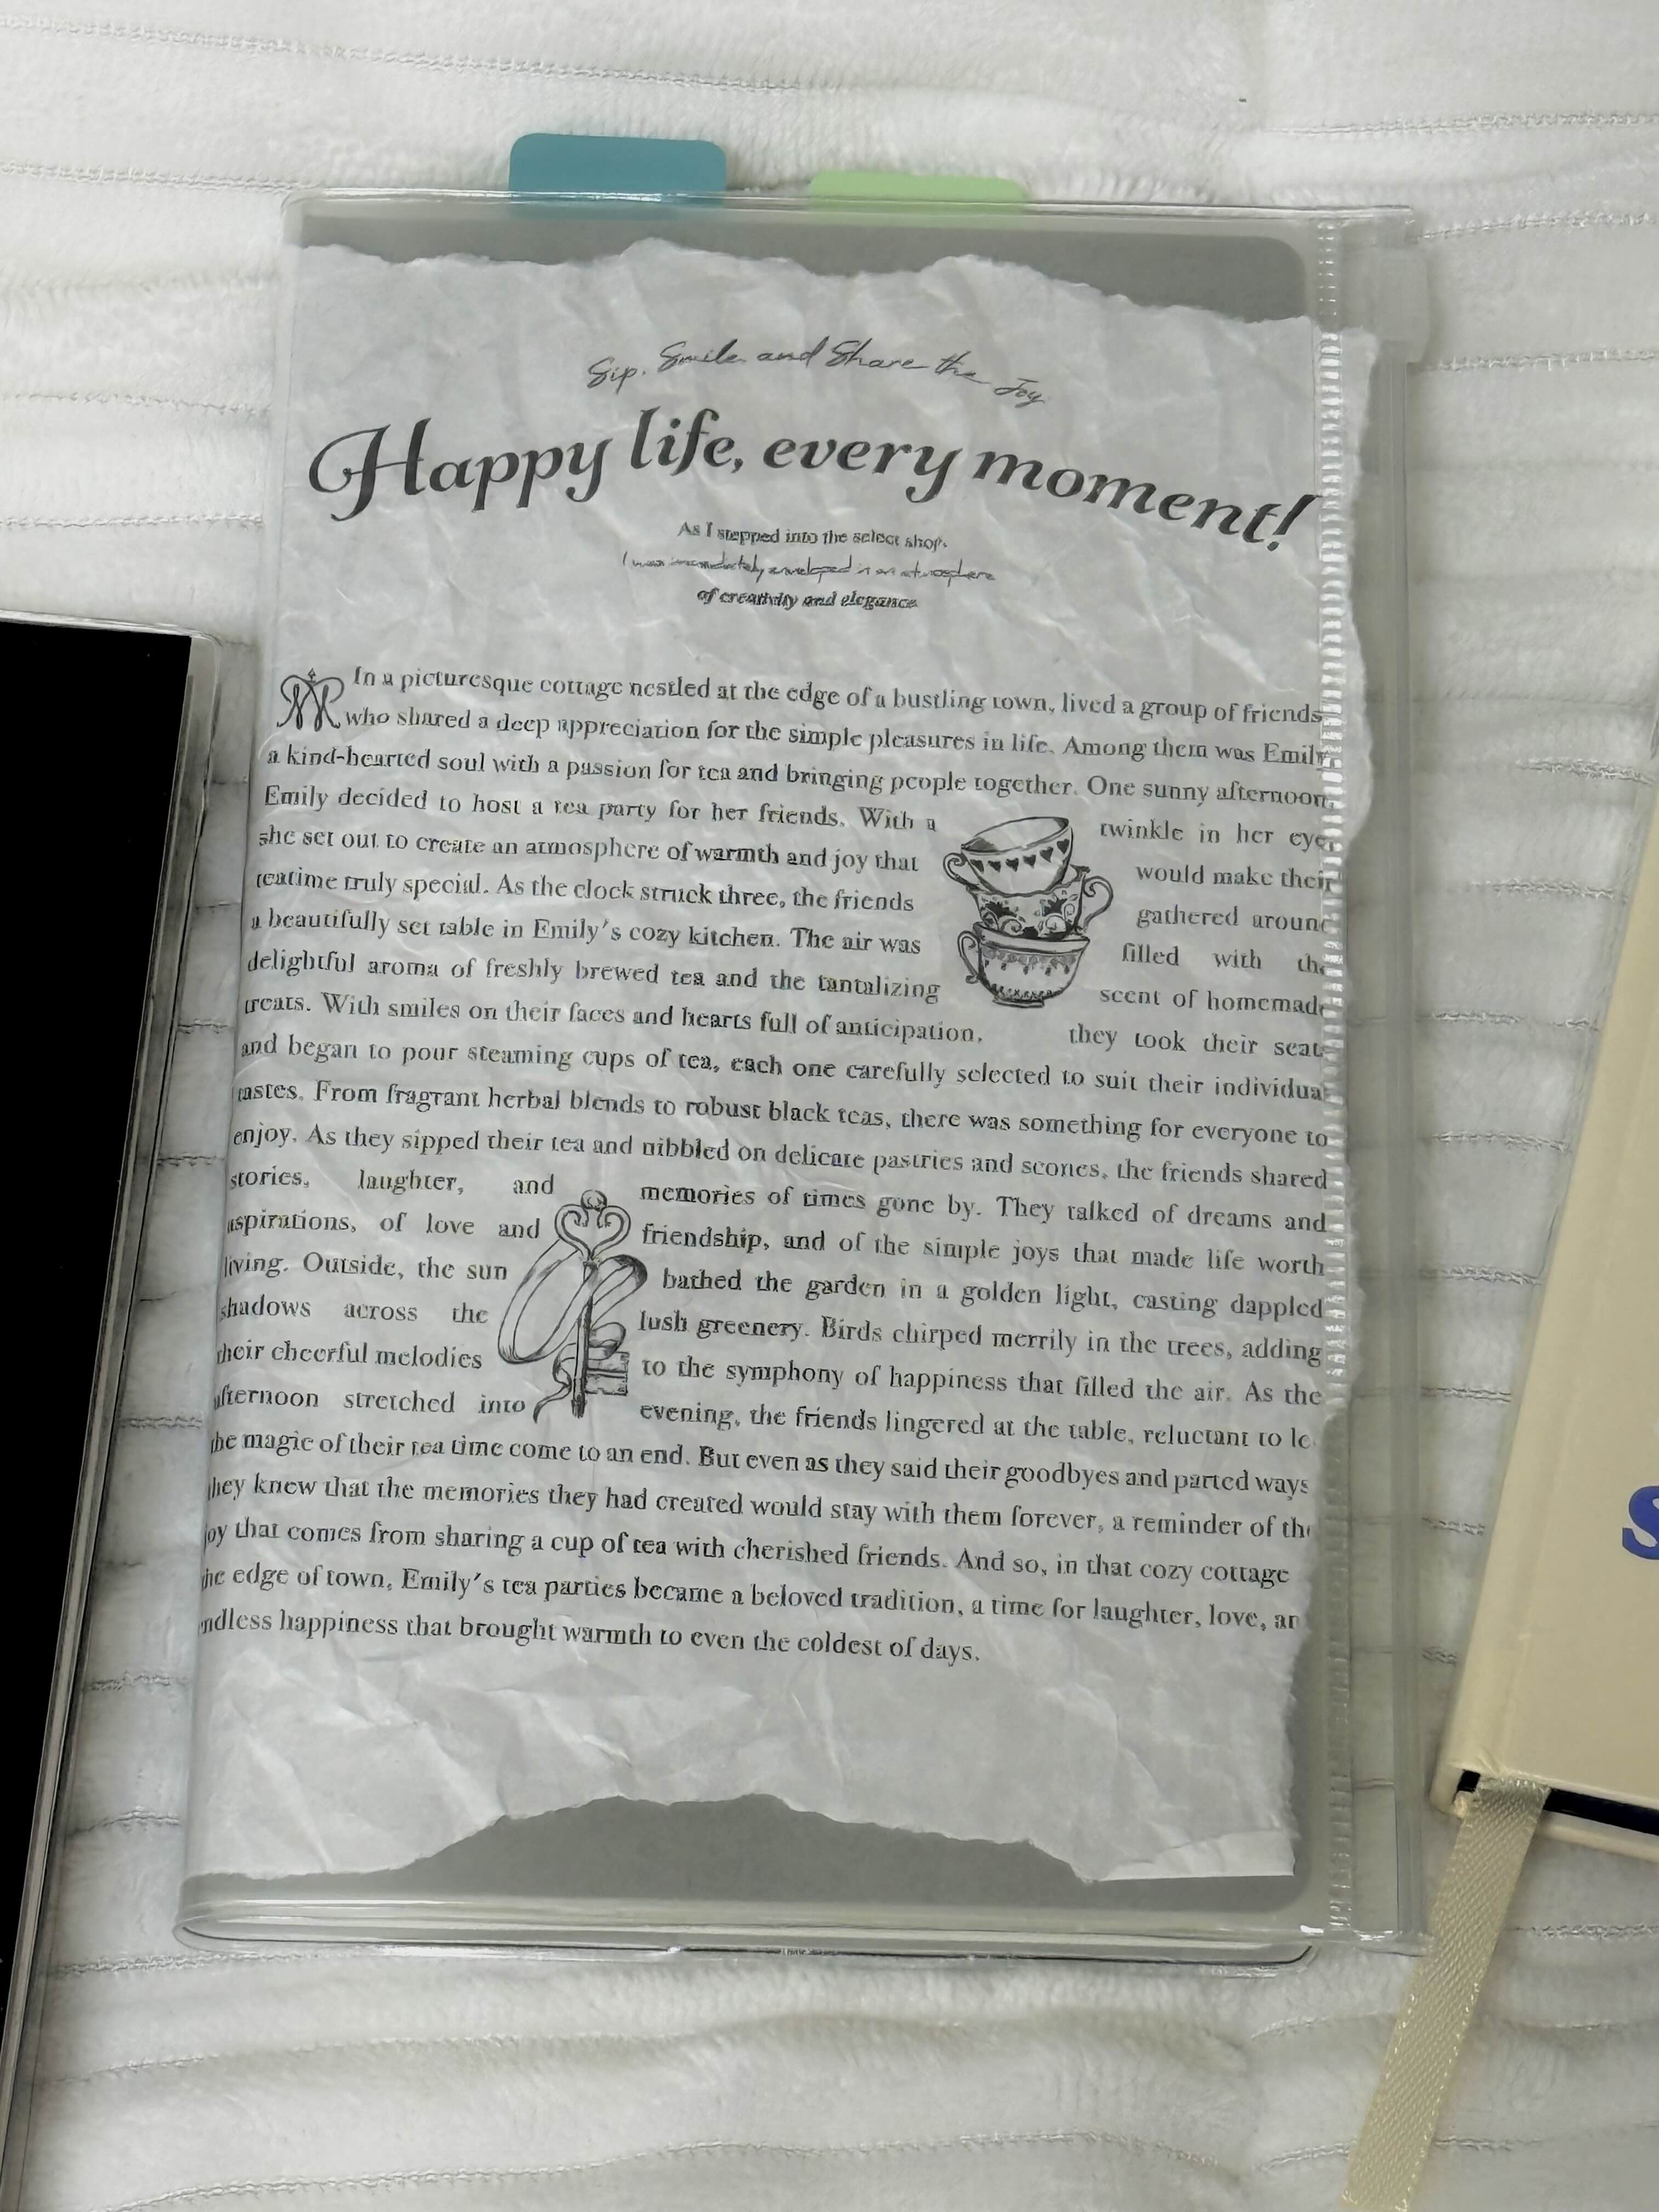 Sip. Smile and Share the Joy
Happy life, every moment!
As I stepped into the select shop.
I was immediately enveloped in an atmosphere
of creativity and elegance
In a picturesque cottage nestled at the edge of a bustling town, lived a group of friends
who shared a deep appreciation for the simple pleasures in life. Among them was Emily,
a kind-hearted soul with a passion for tea and bringing people together. One sunny afternoon,
Emily decided to host a tea party for her friends. With a twinkle in her eye,
she set out to create an atmosphere of warmth and joy that would make their
teatime truly special. As the clock struck three, the friends gathered around
a beautifully set table in Emily's cozy kitchen. The air was filled with the
delightful aroma of freshly brewed tea and the tantalizing scent of homemade
treats. With smiles on their faces and hearts full of anticipation, they took their seats
and began to pour steaming cups of tea, each one carefully selected to suit their individual
tastes. From fragrant herbal blends to robust black teas, there was something for everyone to
enjoy. As they sipped their tea and nibbled on delicate pastries and scones, the friends shared
stories, laughter, and memories of times gone by. They talked of dreams and
aspirations, of love and friendship, and of the simple joys that made life worth
living. Outside, the sun bathed the garden in a golden light, casting dappled
shadows across the lush greenery. Birds chirped merrily in the trees, adding
their cheerful melodies to the symphony of happiness that filled the air. As the
afternoon stretched into evening, the friends lingered at the table, reluctant to le
the magic of their tea time come to an end. But even as they said their goodbyes and parted ways
they knew that the memories they had created would stay with them forever, a reminder of the
joy that comes from sharing a cup of tea with cherished friends. And so, in that cozy cottage
the edge of town, Emily's tea parties became a beloved tradition, a time for laughter, love, an
ndless happiness that brought warmth to even the coldest of days.
S